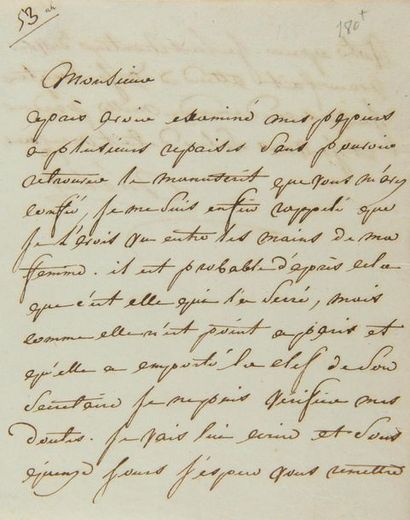 53
180
Monsieur
après avoir examiné mes papiers
a plusieurs reprises sans pouvoir
retrouver le manuscrit que vous m'avez
confié, je me suis enfin rappelé que
je l'avois vu entre les mains de ma
femme. il est probable d'après cela
que c'est elle qui l'a serré, mais
comme elle n'est point a paris et
qu'elle a emporté la clef de son
secretaire je ne puis verifier mes
doutes. je vais lui ecrire et sous
quinze jours j'espere vous remettre